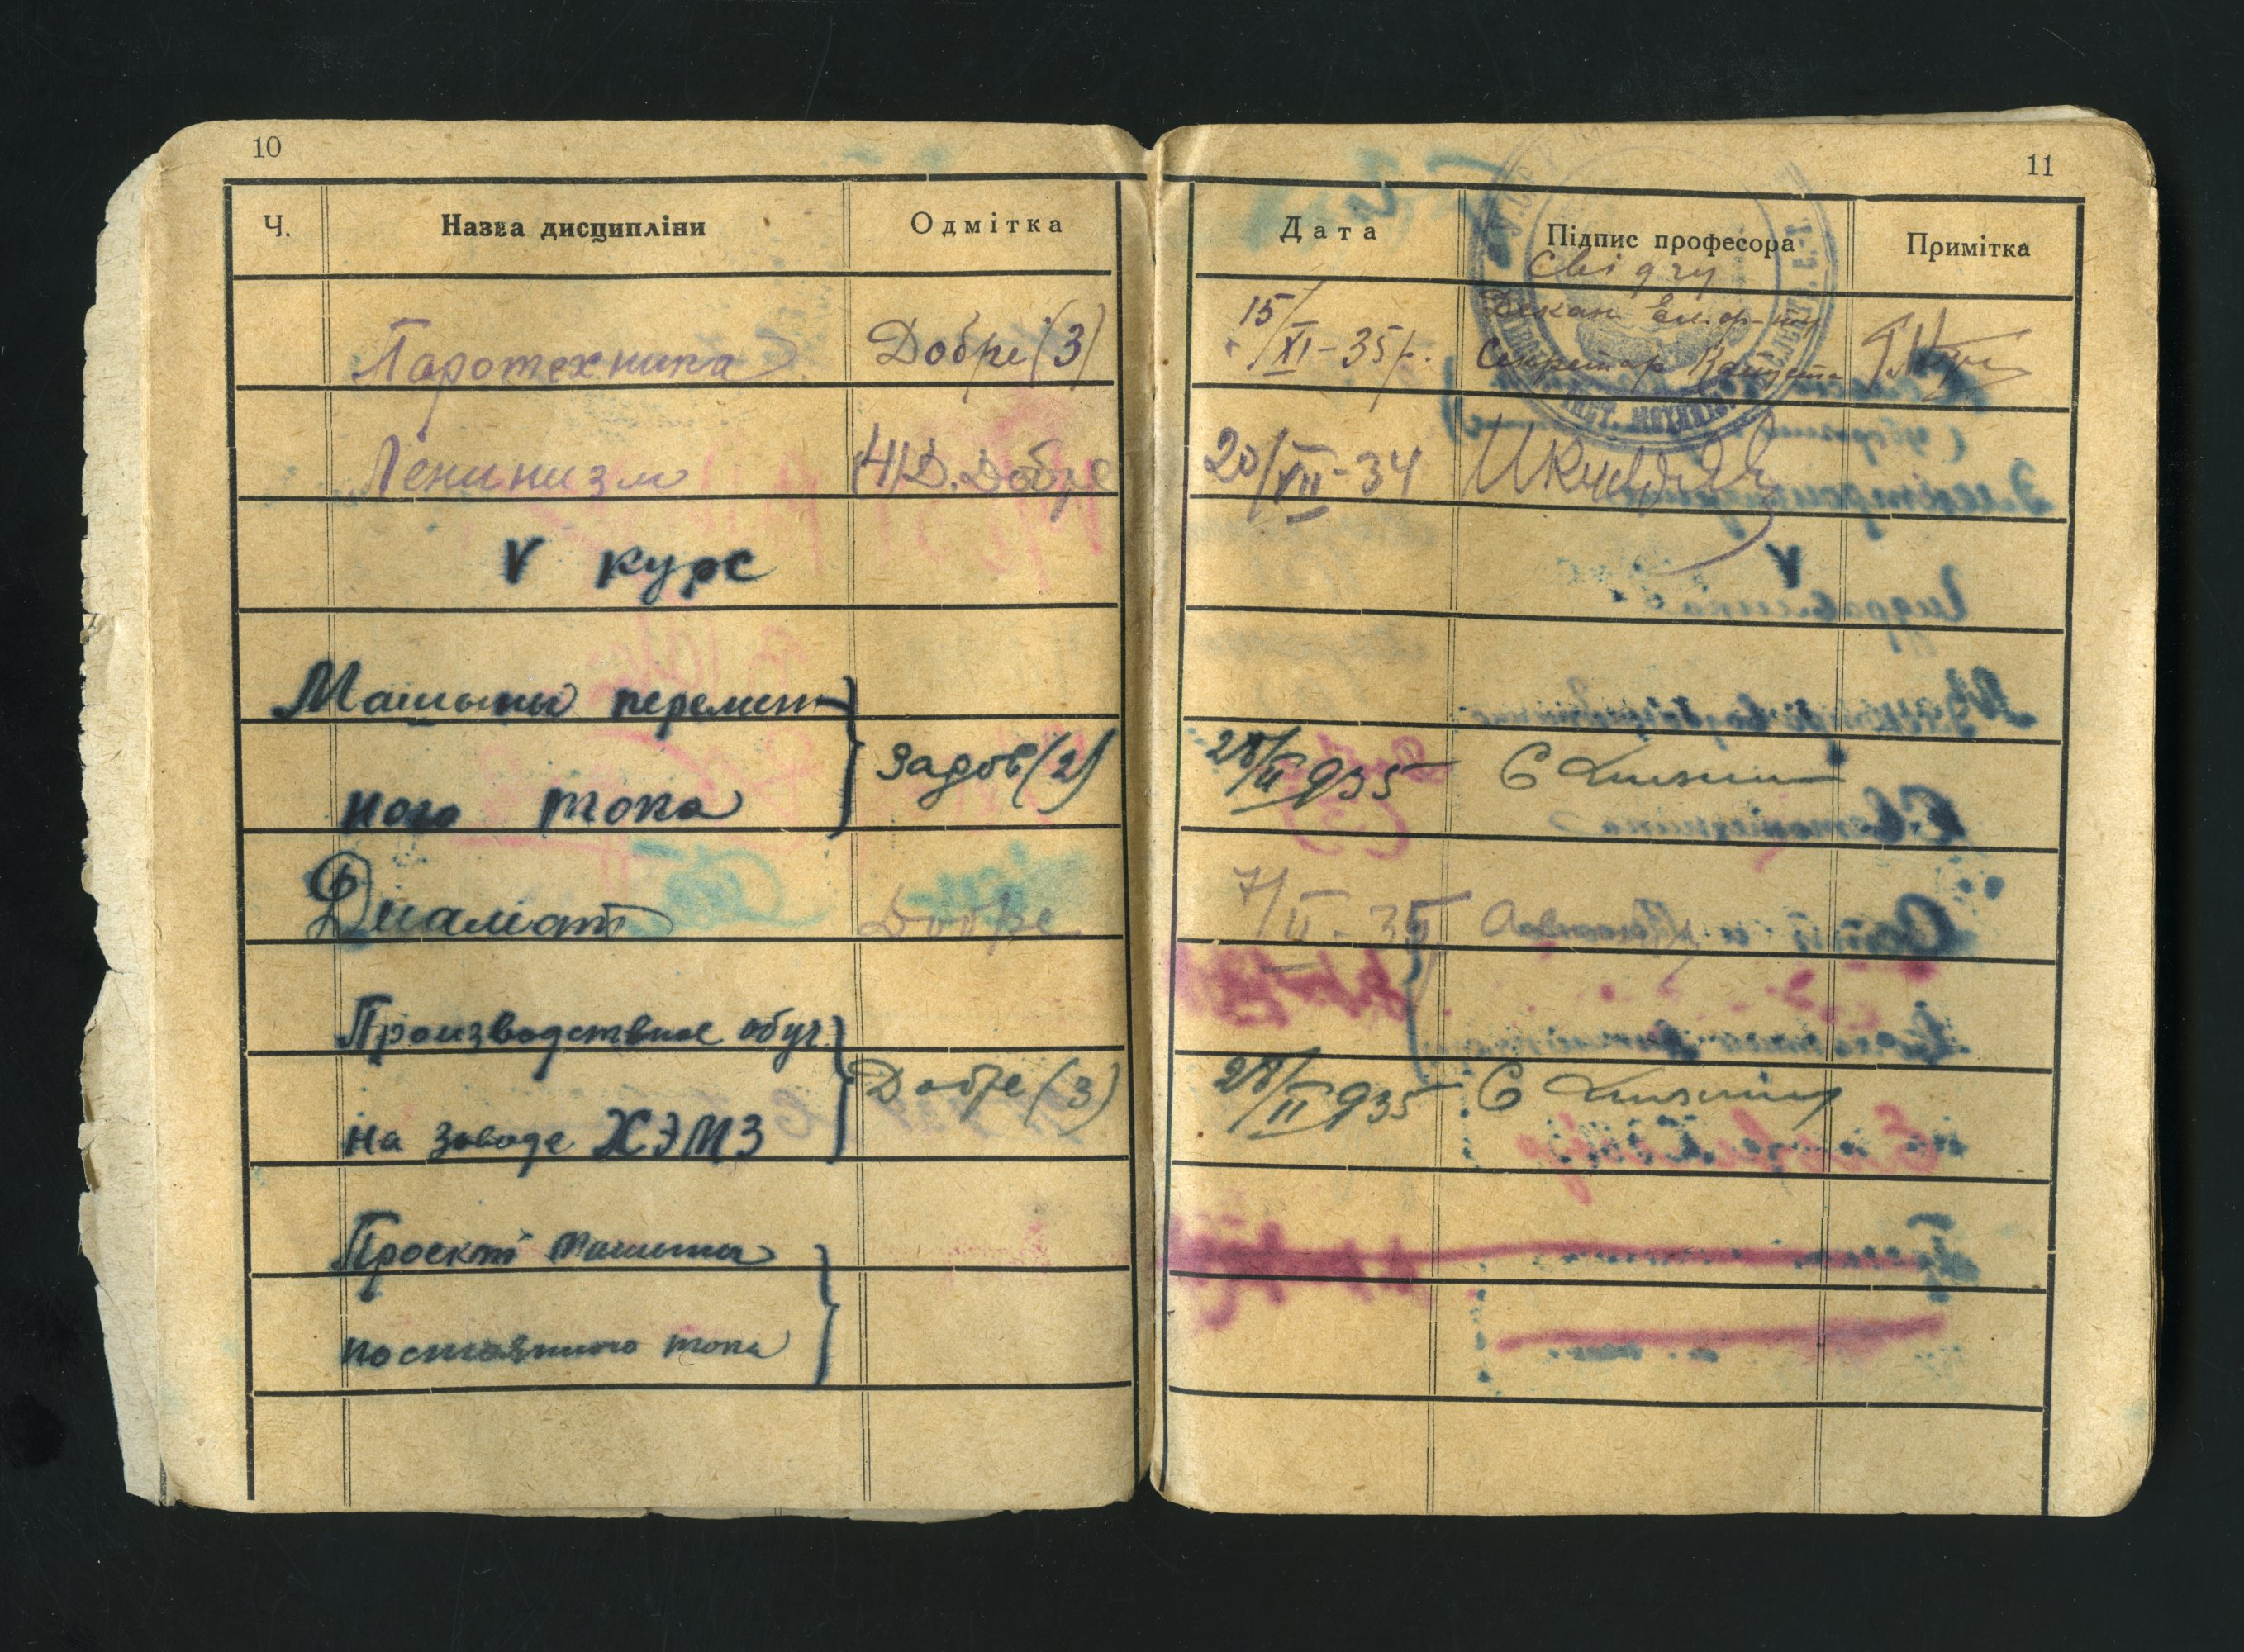 10
Ч. Назва дисципліни Одмітка
Паротехника Добре (3)
Ленинизм (4) Д. Добре
V курс
Машины перемен-
ного тока Задов (2)
Диамат Добре
Производствное обуч.
на заводе ХЭМЗ Добре (3)
Проект машины
постоянного тока
11
Дата Підпис професора Примітка
Свідчу
15/XI-35р. Декан Ел. ф-ту
Секретар
20/XII-34
28/II 935
7/II-35
28/II 935